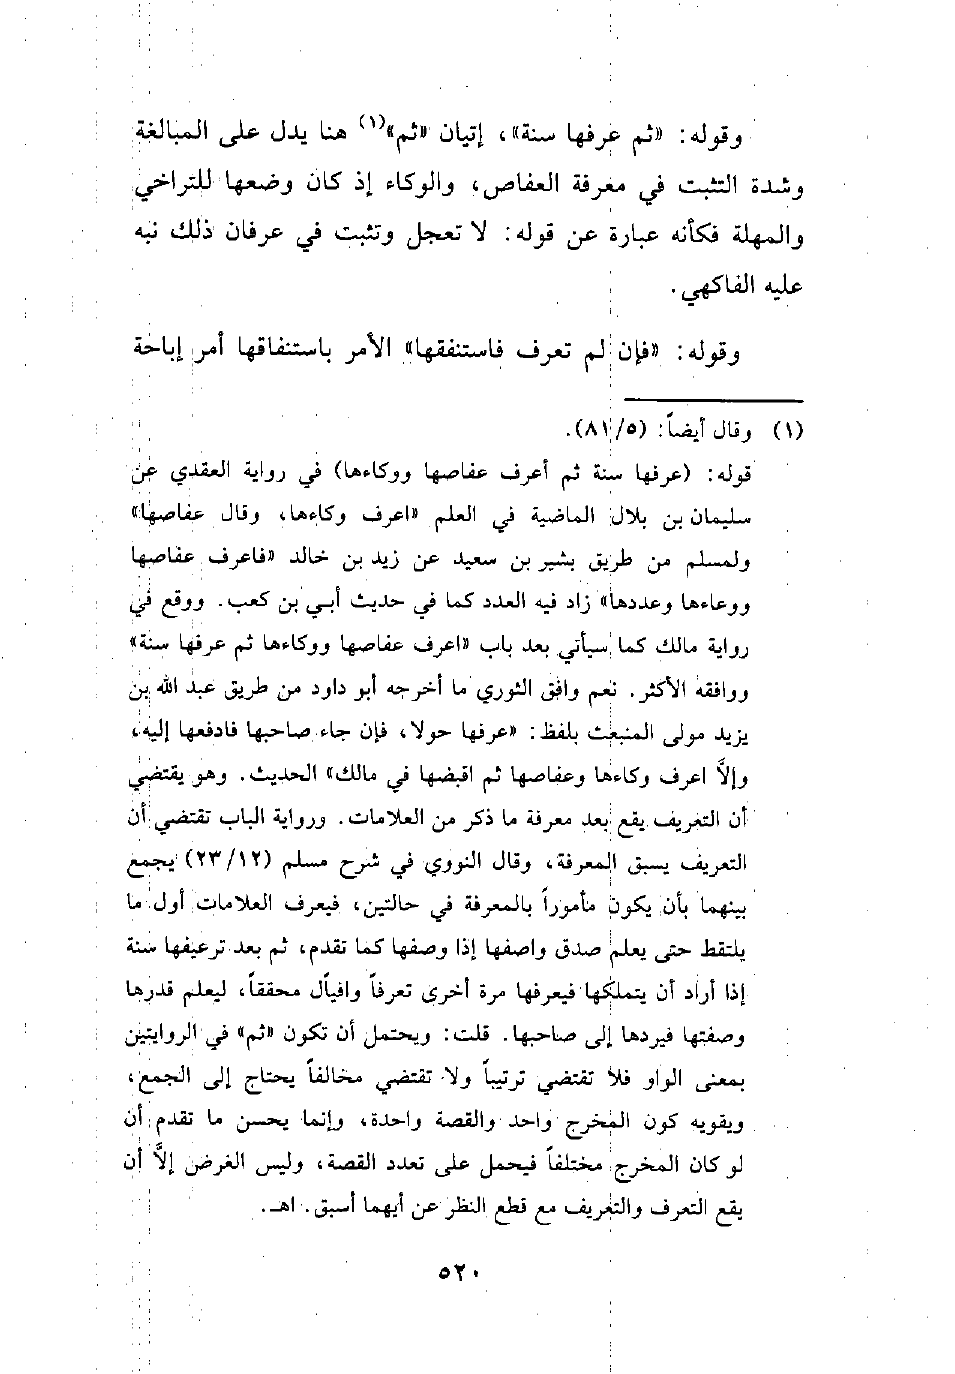 وقوله: «ثم عرفها سنة»، إتيان «ثم»(١) هنا يدل على المبالغة
وشدة التثبت في معرفة العفاص، والوكاء إذ كان وضعها للتراخي
والمهلة فكأنه عبارة عن قوله: لا تعجل وتثبت في عرفان ذلك نبه
عليه الفاكهي.
وقوله: «فإن لم تعرف فاستنفقها» الأمر باستنفاقها أمر إباحة
(١) وقال أيضاً: (٨١/٥).
قوله: (عرفها سنة ثم أعرف عفاصها ووكاءها) في رواية العقدي عن
سليمان بن بلال الماضية في العلم «اعرف وكاءها، وقال عفاصها»
ولمسلم من طريق بشير بن سعيد عن زيد بن خالد «فاعرف عفاصها
ووعاءها وعددها» زاد فيه العدد كما في حديث أبي بن كعب. ووقع في
رواية مالك كما سيأتي بعد باب «اعرف عفاصها ووكاءها ثم عرفها سنة»
ووافقه الأكثر. نعم وافق الثوري ما أخرجه أبو داود من طريق عبد الله بن
يزيد مولى المنبعث بلفظ: «عرفها حولا، فإن جاء صاحبها فادفعها إليه،
وإلاَّ اعرف وكاءها وعفاصها ثم اقبضها في مالك» الحديث. وهو يقتضي
أن التعريف يقع بعد معرفة ما ذكر من العلامات. ورواية الباب تقتضي أن
التعريف يسبق المعرفة، وقال النووي في شرح مسلم (٢٣/١٢) يجمع
بينهما بأن يكون مأموراً بالمعرفة في حالتين، فيعرف العلامات أول ما
يلتقط حتى يعلم صدق واصفها إذا وصفها كما تقدم، ثم بعد ترعيفها سنة
إذا أراد أن يتملكها فيعرفها مرة أخرى تعرفاً وافيأل محققاً، ليعلم قدرها
وصفتها فيردها إلى صاحبها. قلت: ويحتمل أن تكون «ثم» في الروايتين
بمعنى الواو فلا تقتضي ترتيباً ولا تقتضي مخالفاً يحتاج إلى الجمع،
ويقويه كون المخرج واحد والقصة واحدة، وإنما يحسن ما تقدم أن
لو كان المخرج مختلفاً فيحمل على تعدد القصة، وليس الغرض إلاَّ أن
يقع التعرف والتعريف مع قطع النظر عن أيهما أسبق. اهـ.
٥٢٠